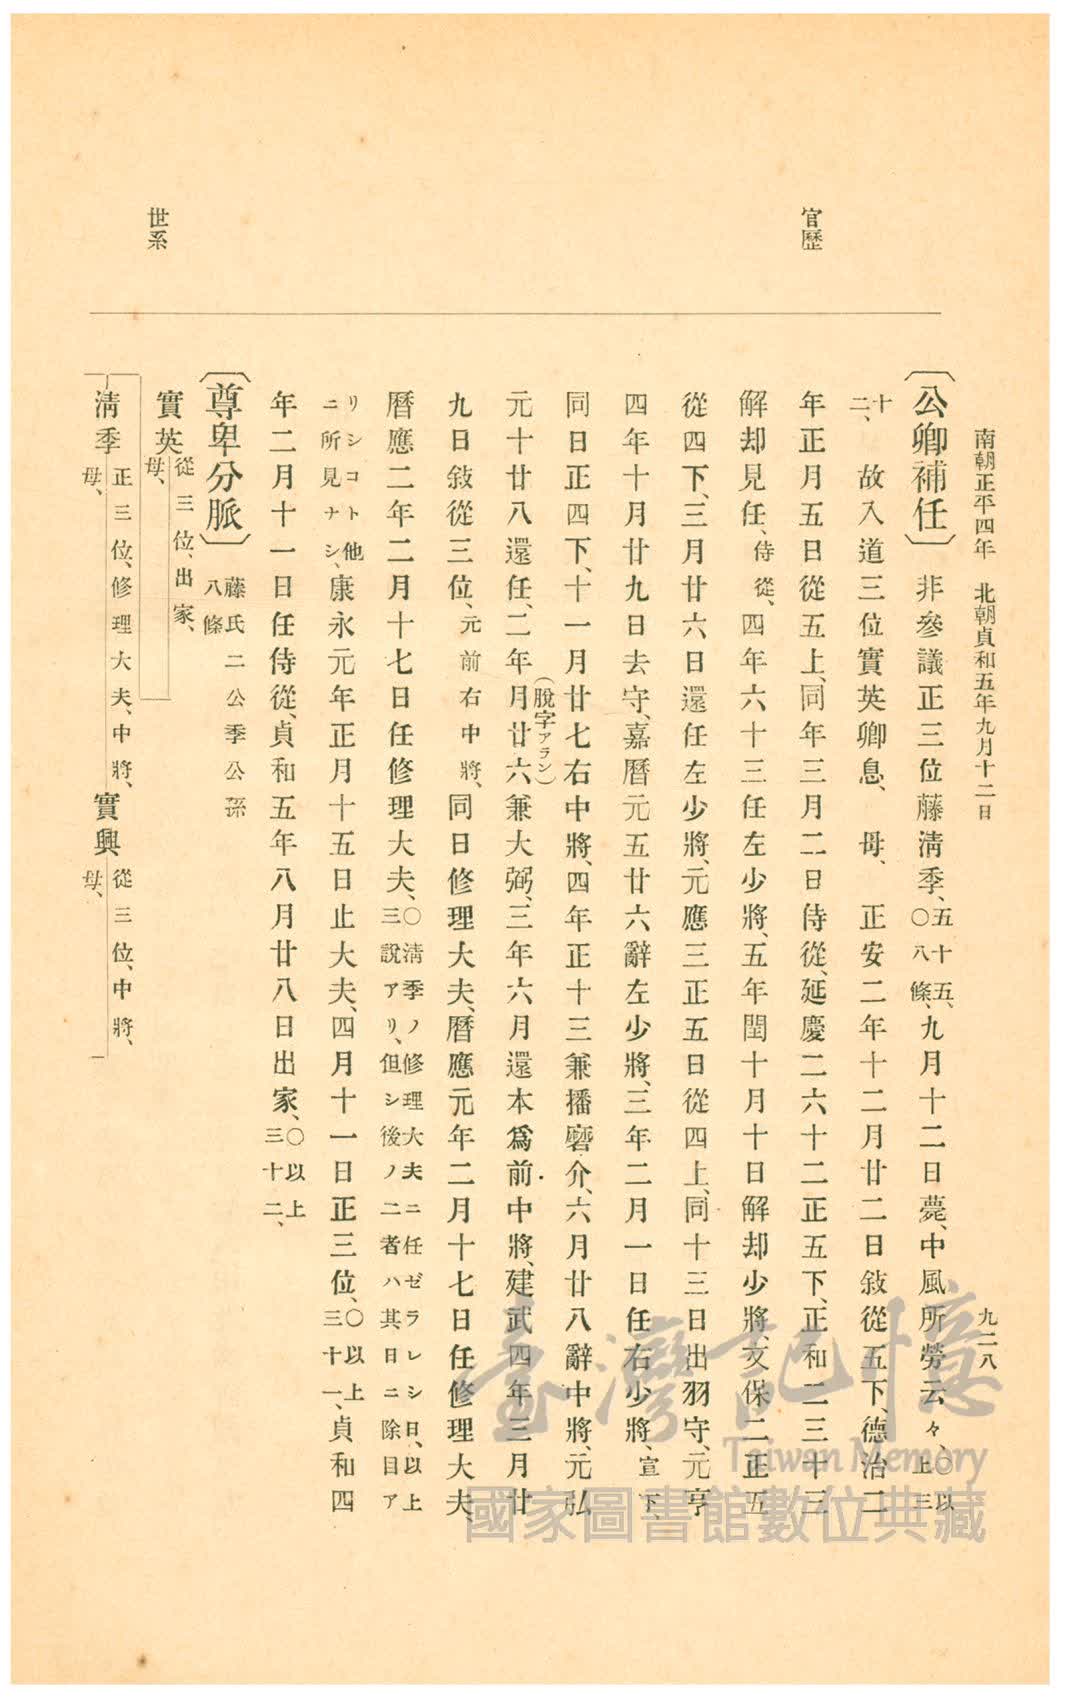 南朝正平四年 北朝貞和五年九月十二日
九二八
官歷
〔公卿補任〕 非參議正三位藤淸季、五十五、〇八條、九月十二日薨、中風所勞云々、〇以上三
十二、 故入道三位實英卿息、 母、 正安二年十二月廿二日敍從五下、德治二
年正月五日從五上、同年三月二日侍從、延慶二六十二正五下、正和二三十三
解却見任、侍從、四年六十三任左少將、五年閏十月十日解却少將、文保二正五
從四下、三月廿六日還任左少將、元應三正五日從四上、同十三日出羽守、元亨
四年十月廿九日去守、嘉曆元五廿六辭左少將、三年二月一日任右少將、宣下、
同日正四下、十一月廿七右中將、四年正十三兼播磨介、六月廿八辭中將、元弘
元十廿八還任、二年月(脫字アラン)廿六兼大弼、三年六月還本爲前中將、建武四年三月廿
九日敍從三位、元前右中將、同日修理大夫、曆應元年二月十七日任修理大夫、
曆應二年二月十七日任修理大夫、〇淸季ノ修理大夫ニ任ゼラレシ日、以上三說アリ、但シ後ノ二者ハ其日ニ除目ア
リシコト他ニ所見ナシ、康永元年正月十五日止大夫、四月十一日正三位、〇以上三十一、貞和四
年二月十一日任侍從、貞和五年八月廿八日出家、〇以上三十二、
世系
〔尊卑分脈〕 藤氏二公季公孫八條
實英 從三位、出家、母、
淸季 正三位、修理大夫、中將、母、 實興 從三位、中將、母、
臺灣記憶
Taiwan Memory
國家圖書館數位典藏